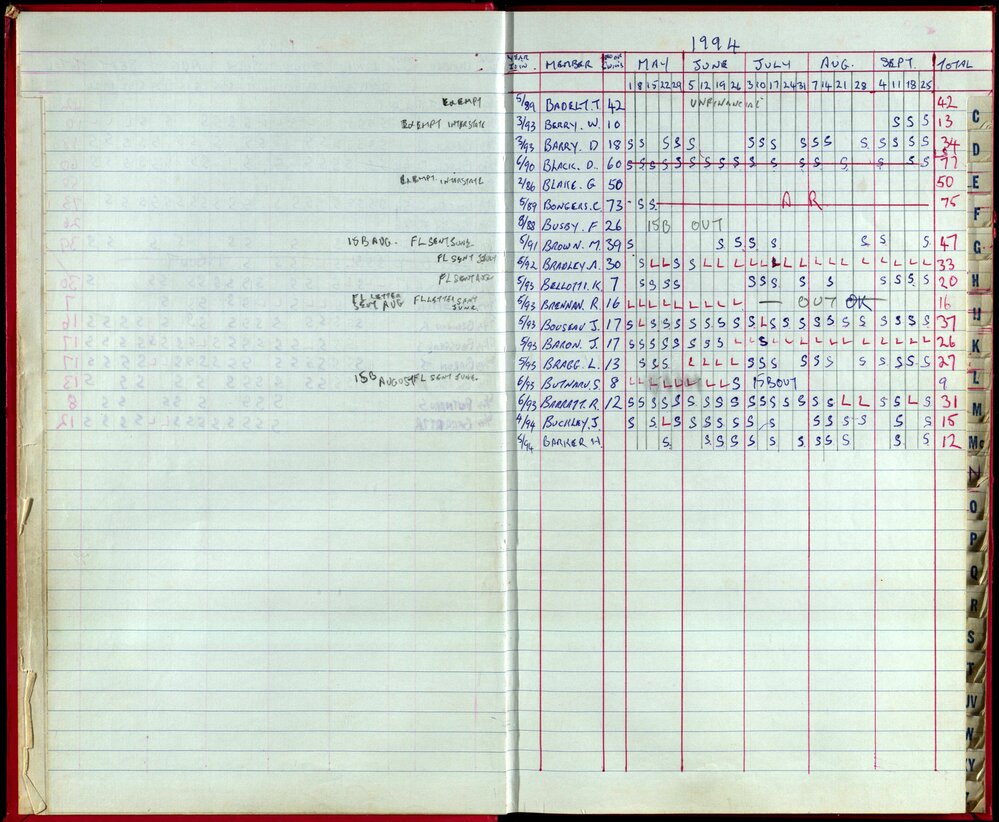 1994
YEAR JOIN. MEMBER MAY JUNE JULY AUG. SEPT. TOTAL
1 8 15 22 29 5 12 19 26 3 10 17 24 31 7 14 21 28 4 11 18 25
EXEMPT 5/89 BADELT T 42 UNFINANCIAL 42
EXEMPT INTERSTATE 3/93 BERRY. W. 10 S S S 13
3/93 BARRY. D 18 S S S S S S S S S S S S S S S S 34
6/90 BLACK. D. 60 S S S S S S S S S S S S S S S S S 77
EXEMPT INTERSTATE 2/86 BLAKE. G 50 50
5/89 BONGERS. C 73 - S S A R 75
8/88 BUSBY. F 26 ISB OUT
ISB AUG. FL SENT JUNE. 5/91 BROWN. M. 39 S S S S S S S S 47
FL SENT JULY 5/92 BRADLEY. A. 30 S L L S S L L L L L L L L L L L L L L L L 33
FL SENT 5/93 BELLOTTI. K 7 S S S S S S S S S S S S S 20
FL LETTER SENT AUG FL LETTER SENT JUNE. 5/93 BRENNAN. R. 16 L L L L L L L L L — OUT OK 16
5/93 BOUSEAU J. 17 S L S S S S S S S S L S S S S S S S S S S S 37
5/93 BARON. J. 17 S S S S S S S S L L S L L L L L L L L L L L 26
5/93 BRAGG. L. 13 S S S L L L L S S S S S S S S S S S 27
ISB AUGUST FL SENT JUNE. 6/93 BUTNARU. S 8 L L L L L L L L S ISB OUT 9
6/93 BARRATT. R. 12 S S S S S S S S S S S S S S S L L S S L S 31
4/94 BUCKLEY. J. S S L S S S S S S S S S S S S S 15
5/94 BARKER H S S S S S S S S S S S S 12
C
D
E
F
G
H
IJ
K
L
M
Mc
N
O
P
Q
R
S
T
UV
W
XY